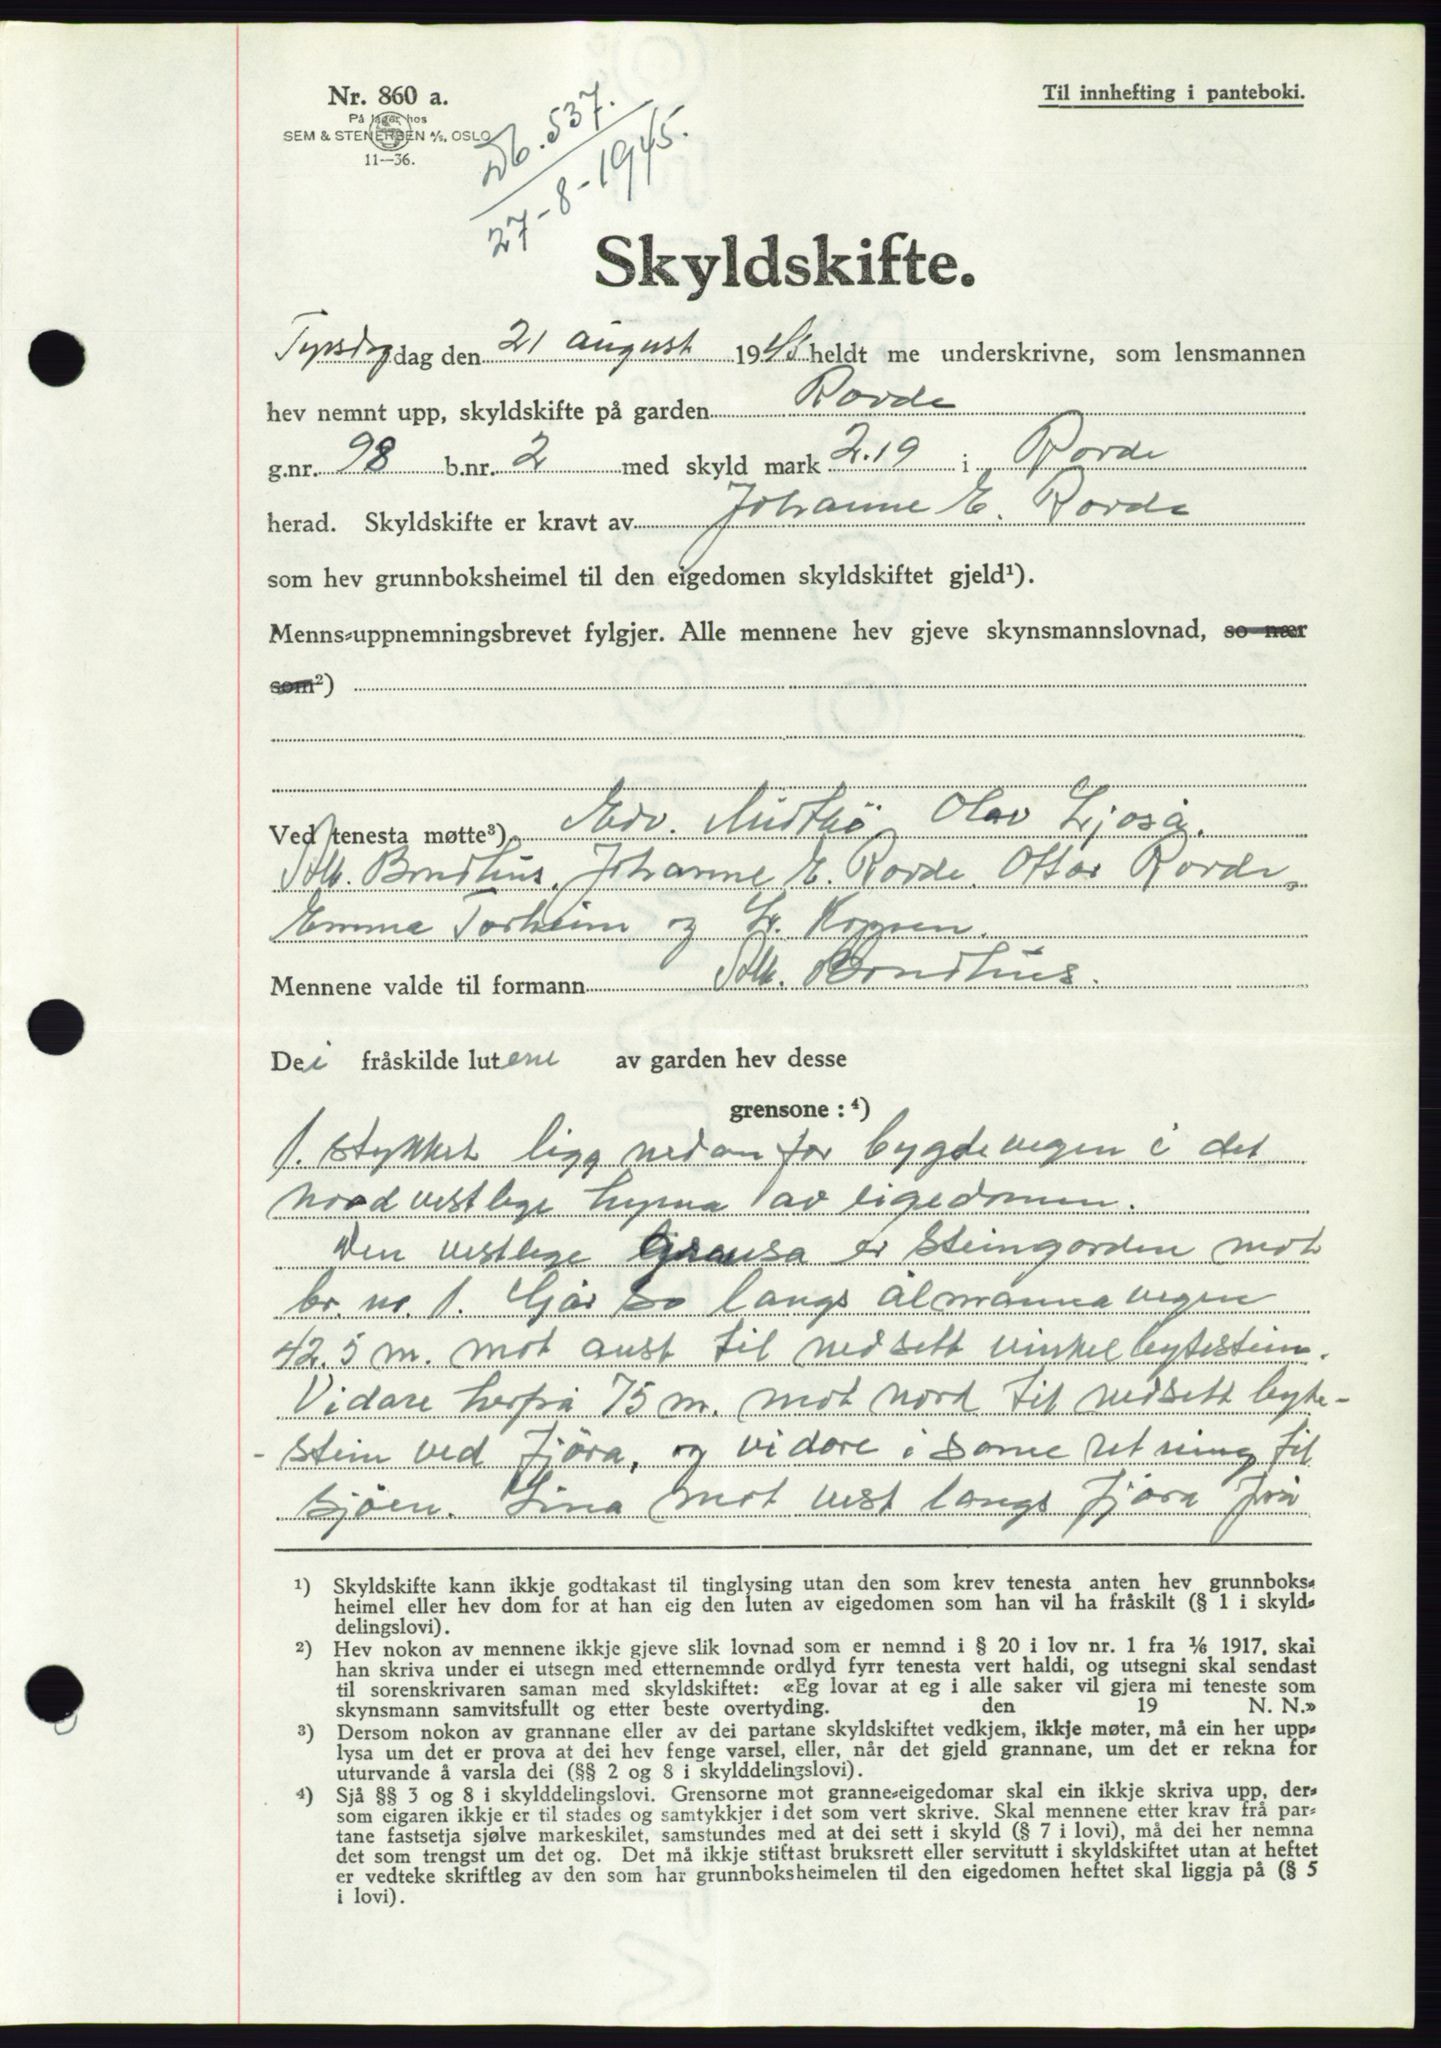 Nr. 860 a.
På lager hos
SEM & STENERSEN A/S, OSLO
11—36.
Til innhefting i panteboki.
Db. 537.
27-8-1945.
Skyldskifte.
Tysdag dag den 21 august 1945 heldt me underskrivne, som lensmannen
hev nemnt upp, skyldskifte på garden Rovde
g.nr. 98 b.nr. 2 med skyld mark 2.19 i Rovde
herad. Skyldskifte er kravt av Johanne E. Rovde
som hev grunnboksheimel til den eigedomen skyldskiftet gjeld¹).
Menns-uppnemningsbrevet fylgjer. Alle mennene hev gjeve skynsmannslovnad, so nær
som²)
Ved tenesta møtte³) Edv. Olav Ljoså.
Bondhus, Johanne E. Rovde. Ottar Rovde,
Emma Torheim og
Mennene valde til formann Bondhus.
Dei fråskilde lutene av garden hev desse
grensone : ⁴)
1. stykket ligg nedanfor bygdevegen i det
nordvestlege hyrna av eigedomen.
Den vestlege grensa er steingarden mot
br. nr. 1. Gjår so langs ålmannavegen
42.5 m. mot aust til nedsett vinkelbytestein.
Vidare herfrå 75 m. mot nord til nedsett byte-
-stein ved fjöra, og vidare i same retning til
sjöen. Lina mot vest langs fjöra frå
¹) Skyldskifte kann ikkje godtakast til tinglysing utan den som krev tenesta anten hev grunnboks-
heimel eller hev dom for at han eig den luten av eigedomen som han vil ha fråskilt (§ 1 i skyld-
delingslovi).
²) Hev nokon av mennene ikkje gjeve slik lovnad som er nemnd i § 20 i lov nr. 1 fra ⅙ 1917, skal
han skriva under ei utsegn med etternemnde ordlyd fyrr tenesta vert haldi, og utsegni skal sendast
til sorenskrivaren saman med skyldskiftet: «Eg lovar at eg i alle saker vil gjera mi teneste som
skynsmann samvitsfullt og etter beste overtyding. den 19 N. N.»
³) Dersom nokon av grannane eller av dei partane skyldskiftet vedkjem, ikkje møter, må ein her upp-
lysa um det er prova at dei hev fenge varsel, eller, når det gjeld grannane, um det er rekna for
uturvande å varsla dei (§§ 2 og 8 i skylddelingslovi).
⁴) Sjå §§ 3 og 8 i skylddelingslovi. Grensorne mot granne-eigedomar skal ein ikkje skriva upp, der-
som eigaren ikkje er til stades og samtykkjer i det som vert skrive. Skal mennene etter krav frå par-
tane fastsetja sjølve markeskilet, samstundes med at dei sett i skyld (§ 7 i lovi), må dei her nemna
det som trengst um det og. Det må ikkje stiftast bruksrett eller servitutt i skyldskiftet utan at heftet
er vedteke skriftleg av den som har grunnboksheimelen til den eigedomen heftet skal liggja på (§ 5
i lovi).